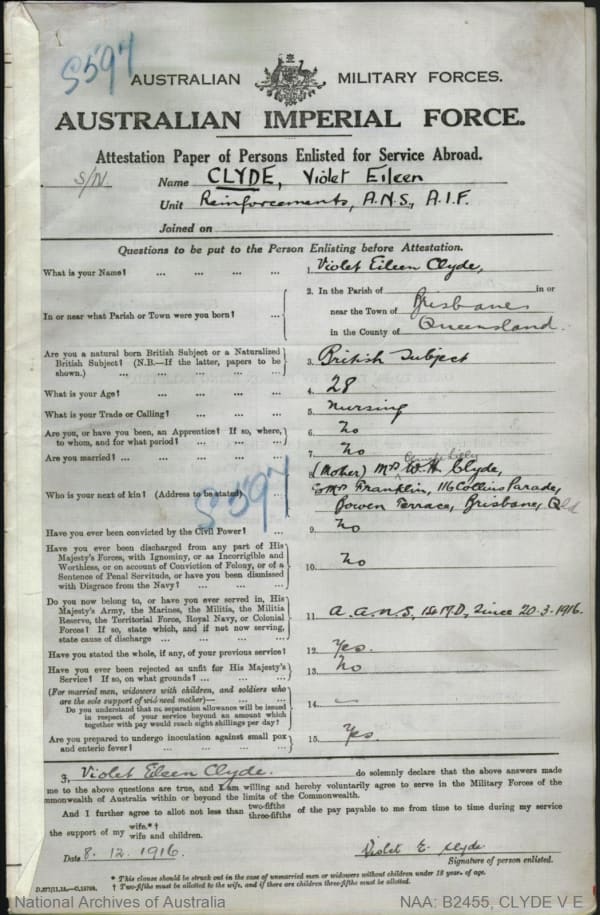 S597
AUSTRALIAN MILITARY FORCES.
AUSTRALIAN IMPERIAL FORCE.
Attestation Paper of Persons Enlisted for Service Abroad.
S/N. Name CLYDE, Violet Eileen
Unit Reinforcements, A.N.S., A.I.F.
Joined on
Questions to be put to the Person Enlisting before Attestation.
What is your Name? ... ... ... ... 1. Violet Eileen Clyde,
2. In the Parish of in or
In or near what Parish or Town were you born? ... near the Town of Brisbane
in the County of Queensland.
Are you a natural born British Subject or a Naturalized
British Subject? (N.B.—If the latter, papers to be
shown.) ... ... ... ... ... 3. British Subject
What is your Age? ... ... ... ... 4. 28
What is your Trade or Calling? ... ... ... 5. Nursing
Are you, or have you been, an Apprentice? If so, where,
to whom, and for what period? ... ... ... 6. No
Are you married? ... ... ... ... 7. No
8. (Mother) Mrs W. H. Clyde,
Who is your next of kin? (Address to be stated) ... c/o Mrs Franklin, 116 Collins Parade,
Bowen Terrace, Brisbane, Qld
S597
Have you ever been convicted by the Civil Power? ... 9. No
Have you ever been discharged from any part of His
Majesty's Forces, with Ignominy, or as Incorrigible and
Worthless, or on account of Conviction of Felony, or of a
Sentence of Penal Servitude, or have you been dismissed
with Disgrace from the Navy? ... ... ... 10. No
Do you now belong to, or have you ever served in, His
Majesty's Army, the Marines, the Militia, the Militia
Reserve, the Territorial Force, Royal Navy, or Colonial
Forces? If so, state which, and if not now serving,
state cause of discharge ... ... ... 11. A.A.N.S, 1st M.D, since 20-3-1916.
Have you stated the whole, if any, of your previous service? 12. Yes.
Have you ever been rejected as unfit for His Majesty's
Service? If so, on what grounds? ... ... ... 13. No
(For married men, widowers with children, and soldiers who
are the sole support of widowed mother)—
Do you understand that no separation allowance will be issued
in respect of your service beyond an amount which
together with pay would reach eight shillings per day? 14. —
Are you prepared to undergo inoculation against small pox
and enteric fever? ... ... ... ... 15. Yes.
I, Violet Eileen Clyde. do solemnly declare that the above answers made
me to the above questions are true, and I am willing and hereby voluntarily agree to serve in the Military Forces of the
mmonwealth of Australia within or beyond the limits of the Commonwealth.
And I further agree to allot not less than two-fifths three-fifths of the pay payable to me from time to time during my service
the support of my wife.*† wife and children.
Date 8. 12. 1916. Violet E. Clyde
Signature of person enlisted.
* This clause should be struck out in the case of unmarried men or widowers without children under 18 years of age.
† Two-fifths must be allotted to the wife, and if there are children three-fifths must be allotted.
National Archives of Australia NAA: B2455, CLYDE V E